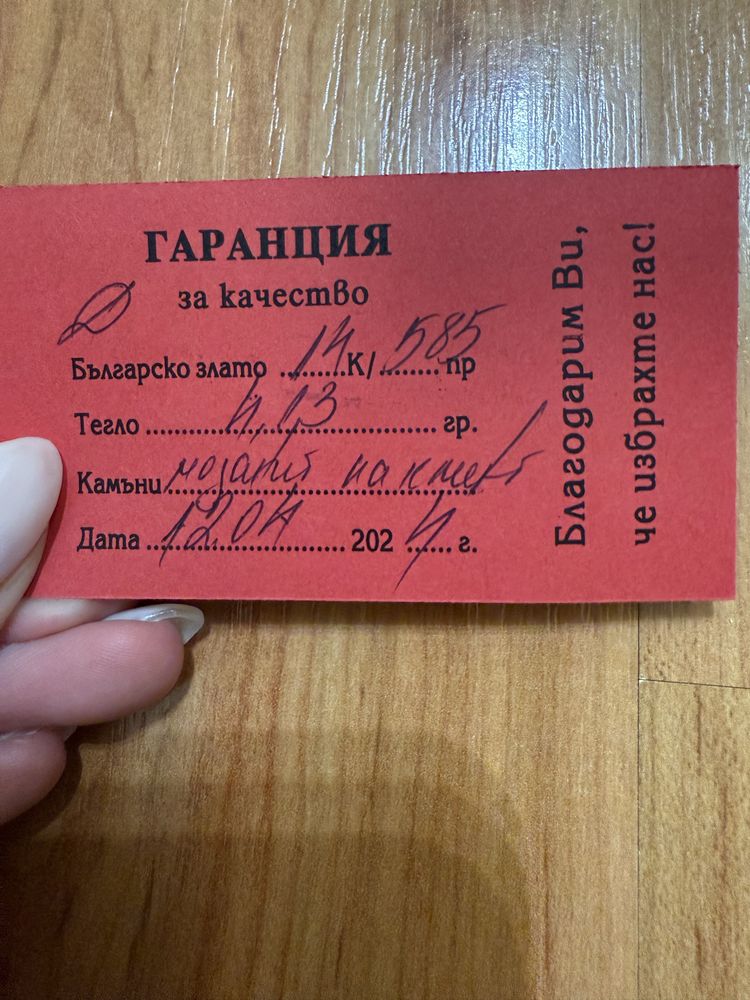 ГАРАНЦИЯ
за качество
Българско злато 14 К/ 585 пр
Тегло 4,13 гр.
Камъни на клиент
Дата 12.04 2024 г.
Благодарим Ви,
че избрахте нас!